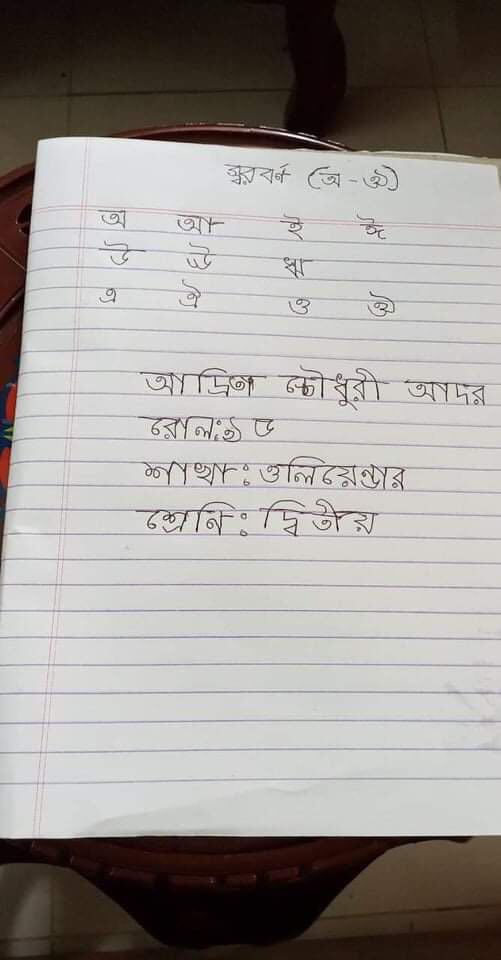 স্বরবর্ণ (অ - ঔ)
অ আ ই ঈ
উ ঊ ঋ
এ ঐ ও ঔ
চৌধুরী আদর
রোল: ১৮
শাখা: ওলিয়েন্ডার
শ্রেনি: দ্বিতীয়